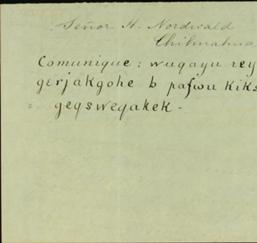 Señor H. Nordwald
Chihuahua
Comunique: wugayu rey
gerjakgohe b pafwu kiks
geqswegakek.